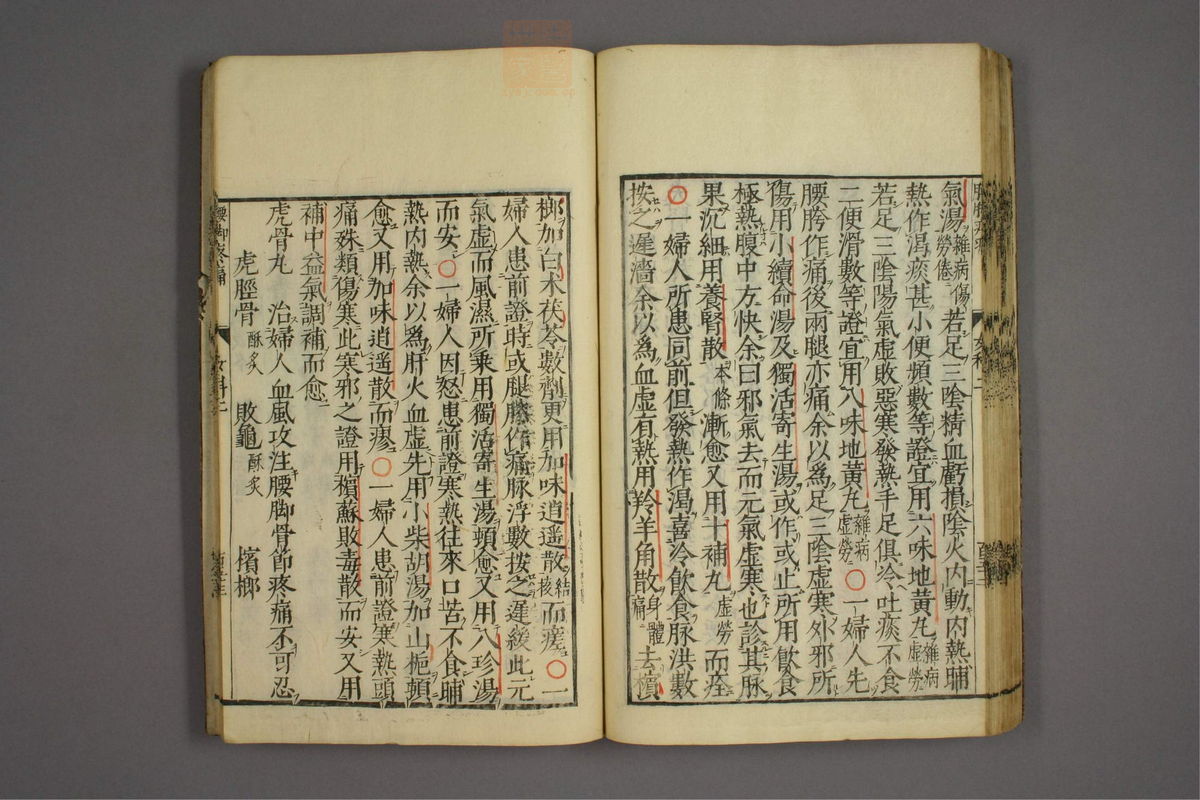 氣湯雜病傷勞倦若足三陰精血虧損陰火内動内熱晡
熱作渴痰甚小便頻數等證宜用六味地黃丸雜病虚勞
若足三陰陽氣虚敗惡寒發熱手足俱冷吐痰不食
二便滑數等證宜用八味地黃丸雜病虚勞○一婦人先
腰胯作痛後兩腿亦痛余以爲足三陰虚寒外邪所
傷用小續命湯及獨活寄生湯或作或止所用飲食
極熱腹中方快余曰邪氣去而元氣虚寒也診其脉
果沉細用養腎散本條漸愈又用十補丸虚勞而痊
○一婦人所患同前但發熱作渴喜冷飲食脉洪數
按之遲濇余以爲血虚有熱用羚羊角散身體痛去檳
榔加白朮茯苓數劑更用加味逍遥散結核而瘥○一
婦人患前證時或腿膝作痛脉浮數按之遲緩此元
氣虚而風濕所乘用獨活寄生湯頓愈又用八珍湯
而安○一婦人因怒患前證寒熱往來口苦不食晡
熱内熱余以爲肝火血虚先用小柴胡湯加山梔頓
愈又用加味逍遥散而瘳○一婦人患前證寒熱頭
痛殊類傷寒此寒邪之證用檳蘇敗毒散而安又用
補中益氣調補而愈
虎骨丸 治婦人血風攻注腰脚骨節疼痛不可忍
虎脛骨酥炙 敗龜酥炙 檳榔
腰脚疼痛 女科二